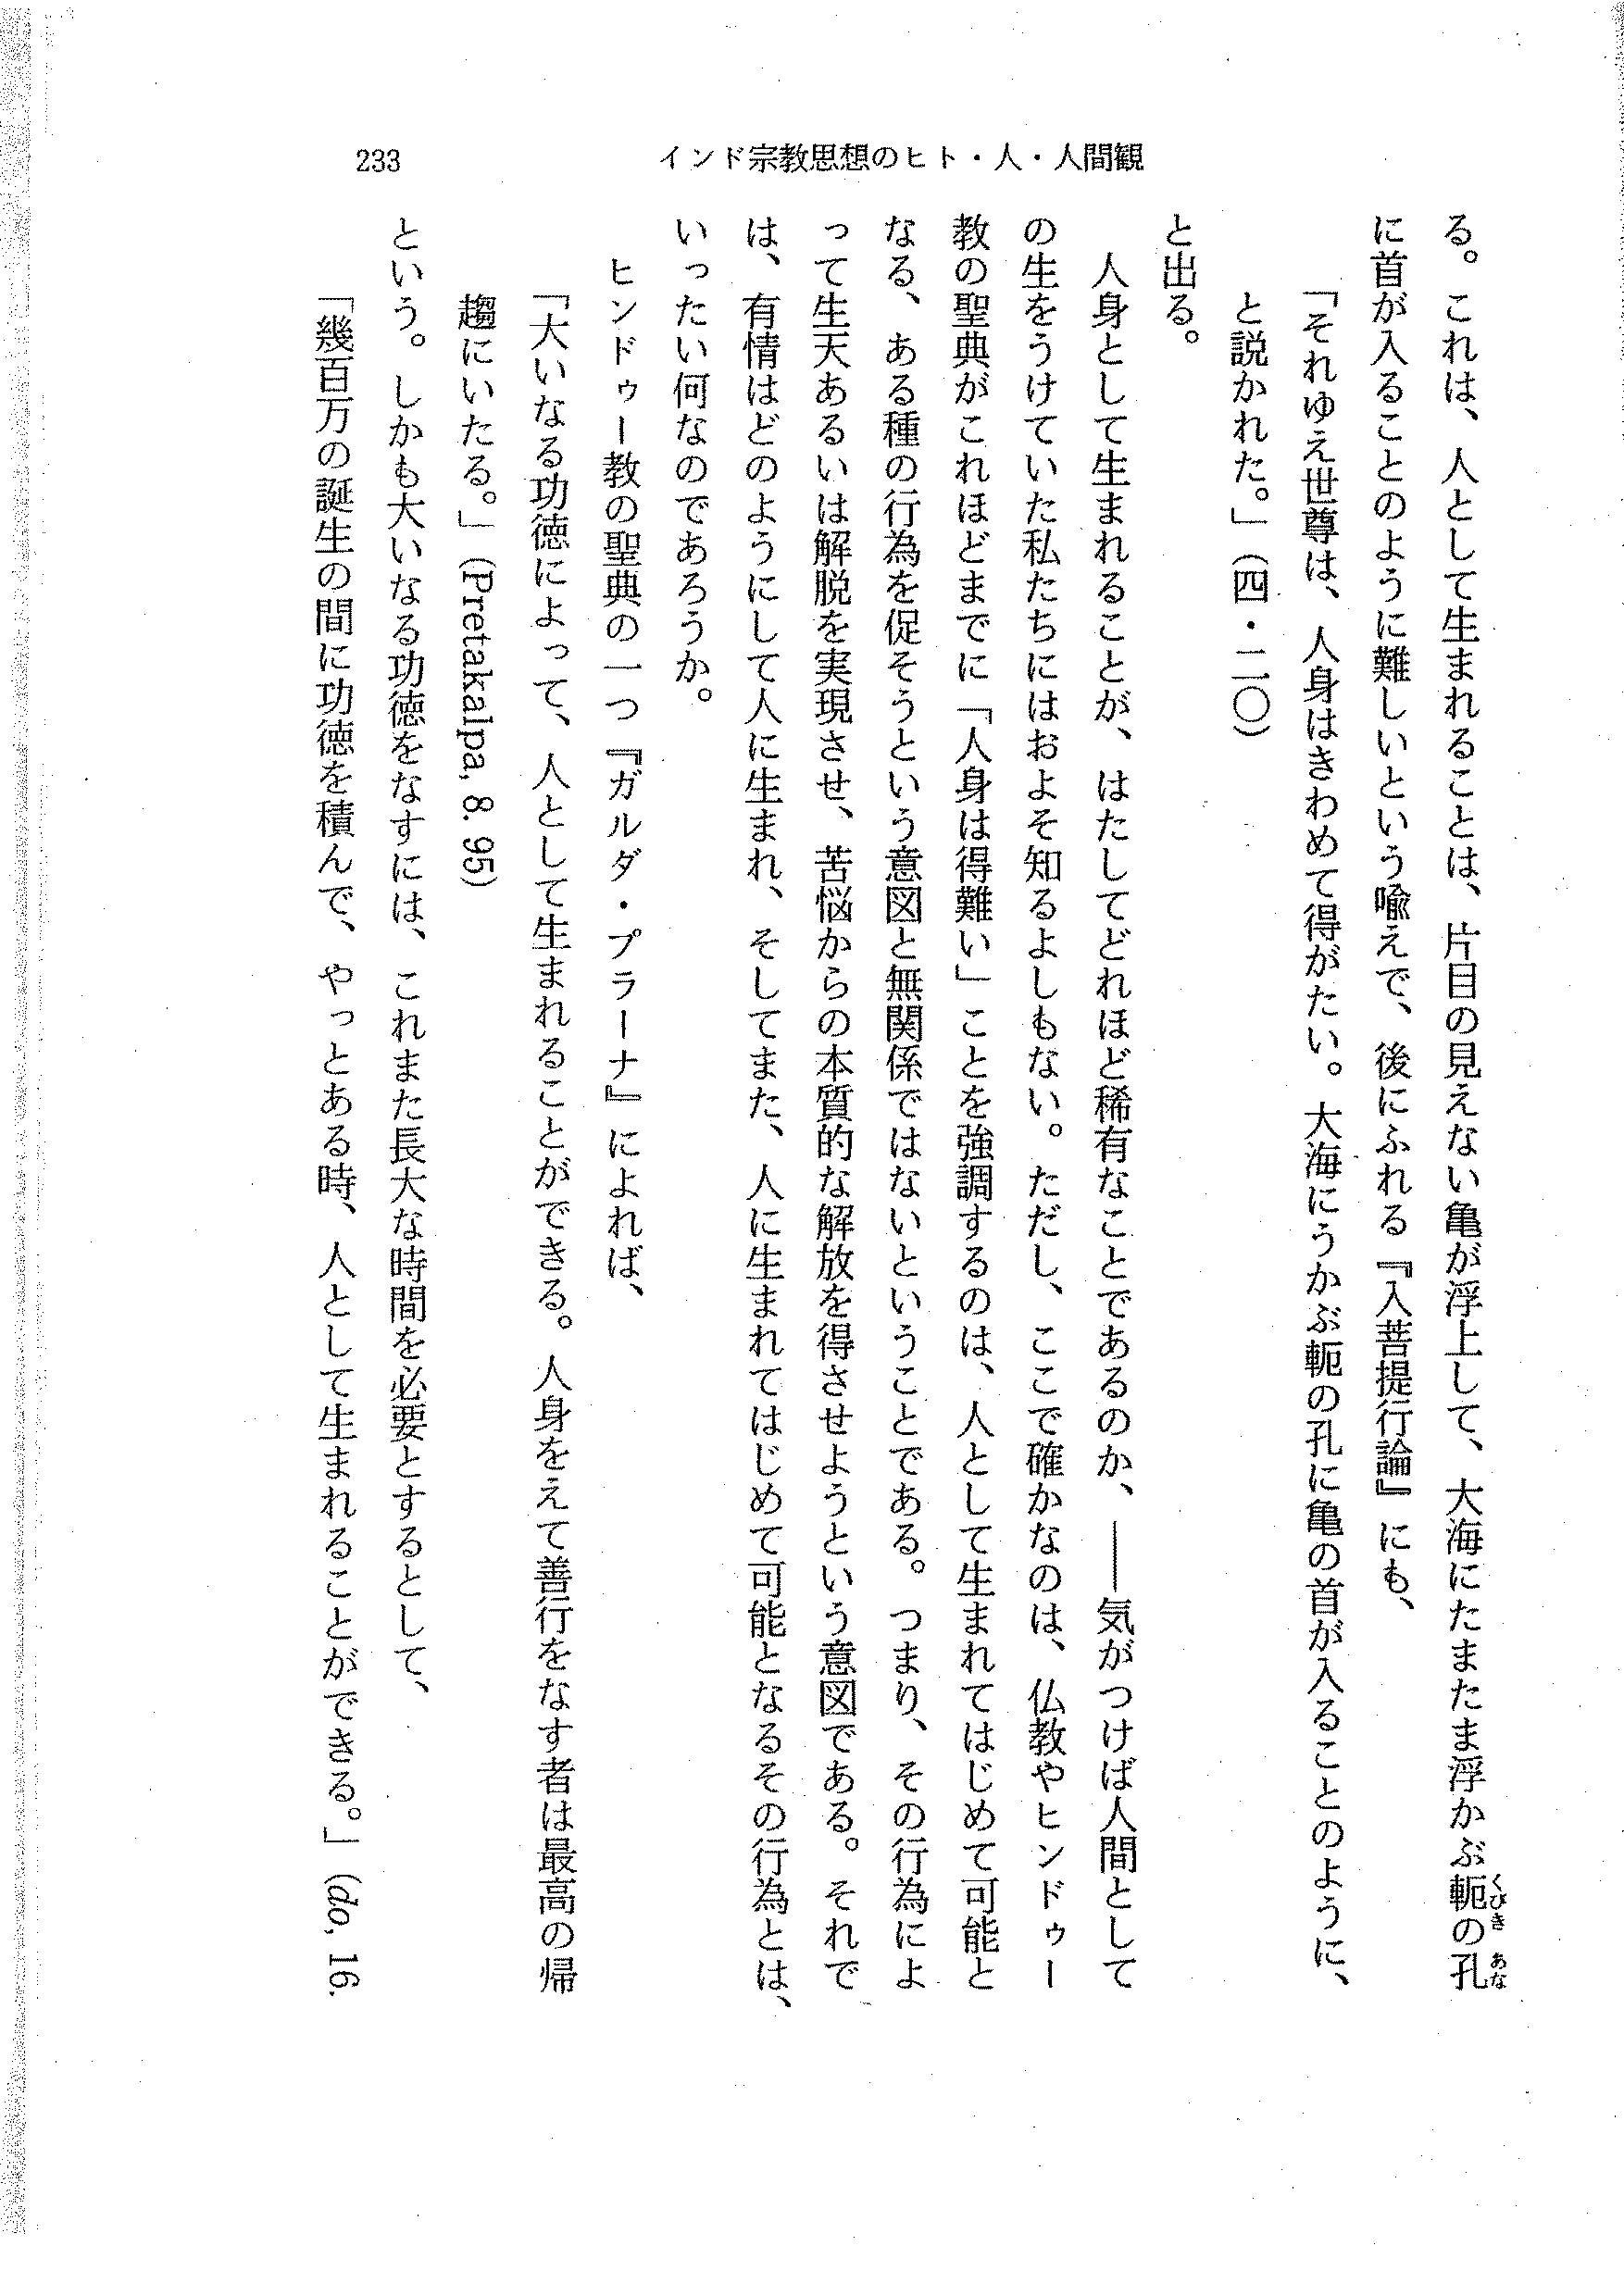 233
インド宗教思想のヒト・人・人間観
る。これは、人として生まれることは、片目の見えない亀が浮上して、大海にたまたま浮かぶ軛の孔
くびき あな
に首が入ることのように難しいという喩えで、後にふれる『入菩提行論』にも、
「それゆえ世尊は、人身はきわめて得がたい。大海にうかぶ軛の孔に亀の首が入ることのように、
と説かれた。」(四・二〇)
と出る。
人身として生まれることが、はたしてどれほど稀有なことであるのか、――気がつけば人間として
の生をうけていた私たちにはおよそ知るよしもない。ただし、ここで確かなのは、仏教やヒンドゥー
教の聖典がこれほどまでに「人身は得難い」ことを強調するのは、人として生まれてはじめて可能と
なる、ある種の行為を促そうという意図と無関係ではないということである。つまり、その行為によ
って生天あるいは解脱を実現させ、苦悩からの本質的な解放を得させようという意図である。それで
は、有情はどのようにして人に生まれ、そしてまた、人に生まれてはじめて可能となるその行為とは、
いったい何なのであろうか。
ヒンドゥー教の聖典の一つ『ガルダ・プラーナ』によれば、
「大いなる功徳によって、人として生まれることができる。人身をえて善行をなす者は最高の帰
趨にいたる。」(Pretakalpa, 8. 95)
という。しかも大いなる功徳をなすには、これまた長大な時間を必要とするとして、
「幾百万の誕生の間に功徳を積んで、やっとある時、人として生まれることができる。」(do, 16.